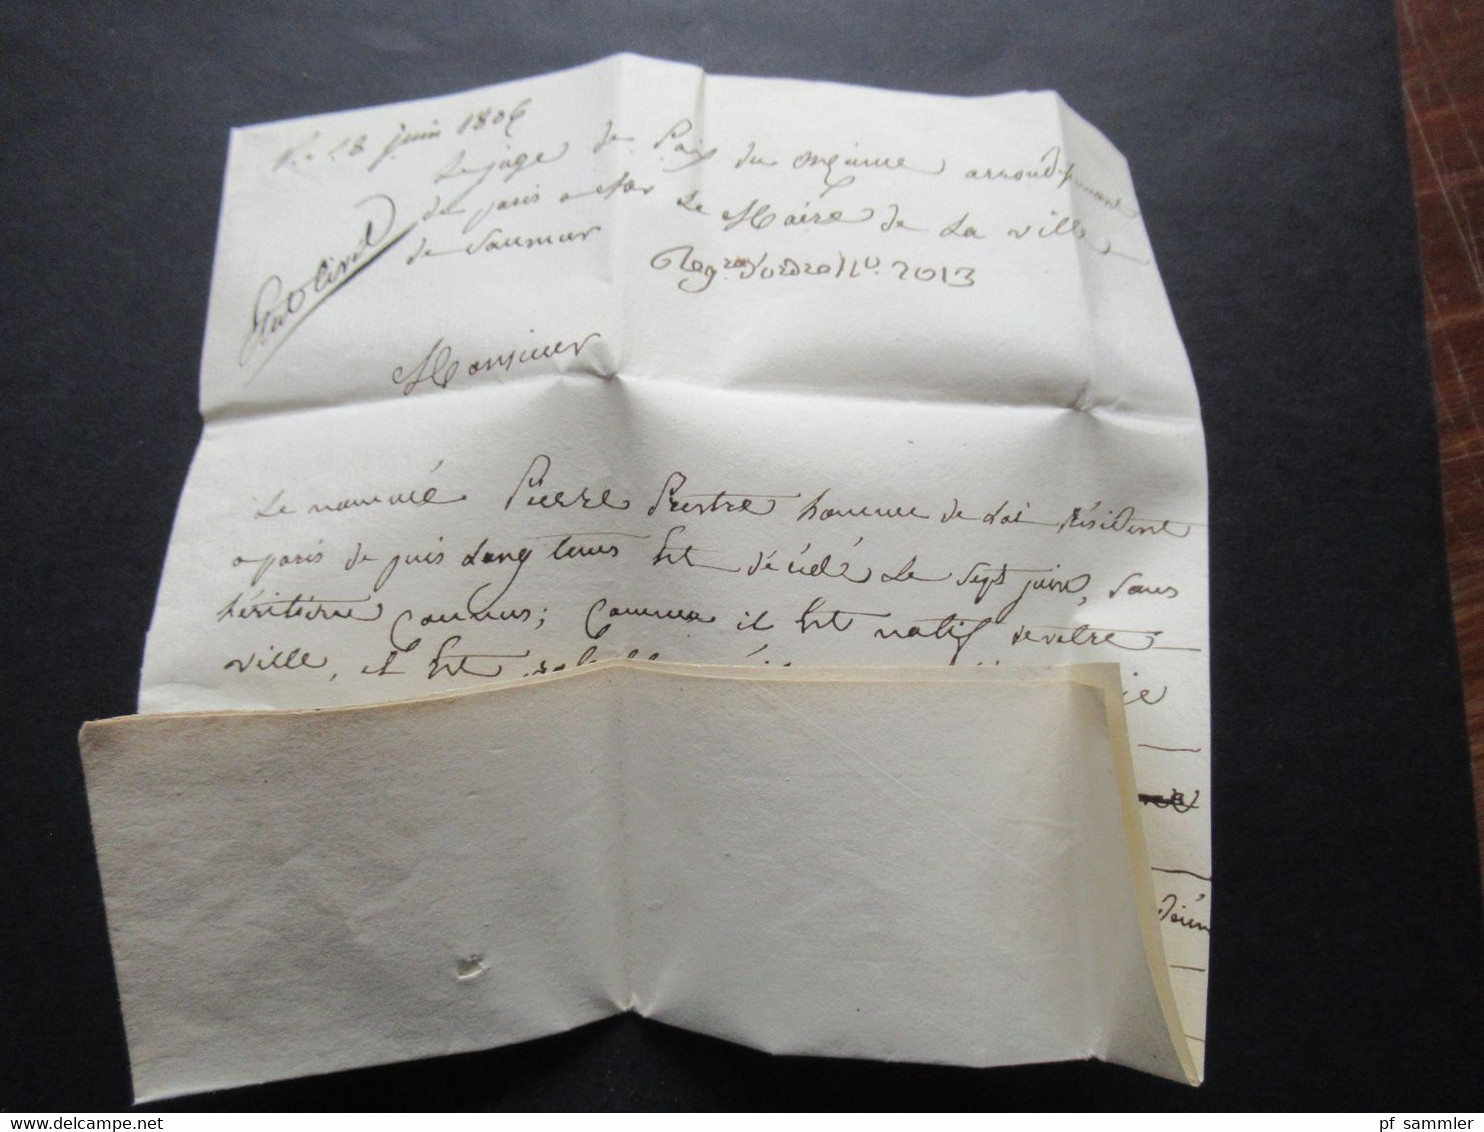 28 juin 1806
Le juge de Paix du onzieme arrondissement
de paris a Mr Le Maire de La ville
de Saumur
Etat Civil
Regre d'ordre No. 2013
Monsieur
Le nommé Pierre Prestre homme de Loi résident
a paris de puis Long tems Est décédé Le Sept juin, sans
héritiers connus; comme il Est natif de votre
ville, il Est
pf sammler